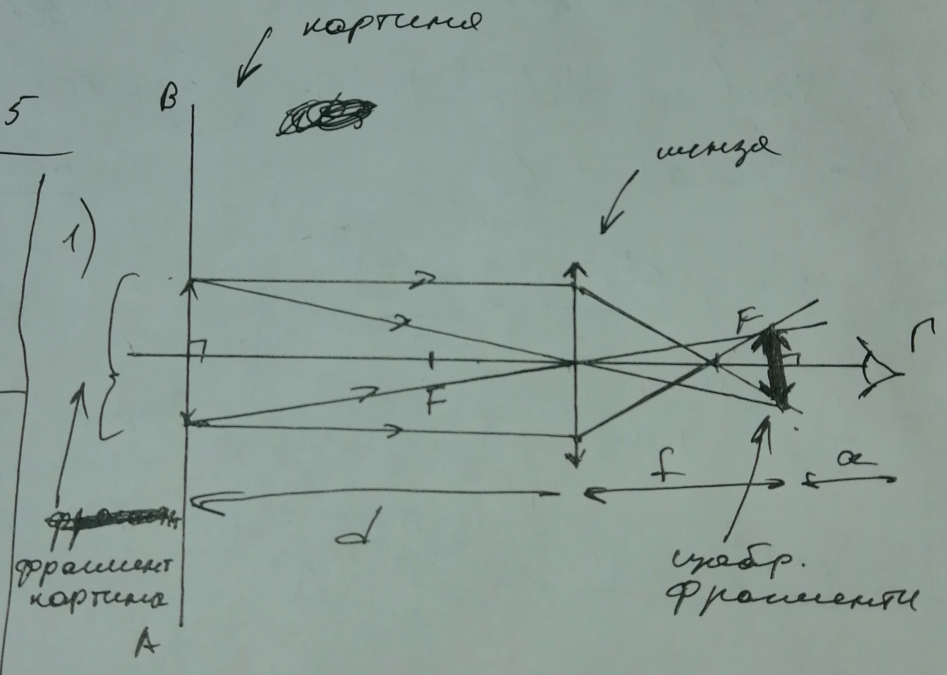 картина
5
В
линза
1)
F
Г
F
f
a
d
фрагмент
картина
изобр.
фрагмента
А